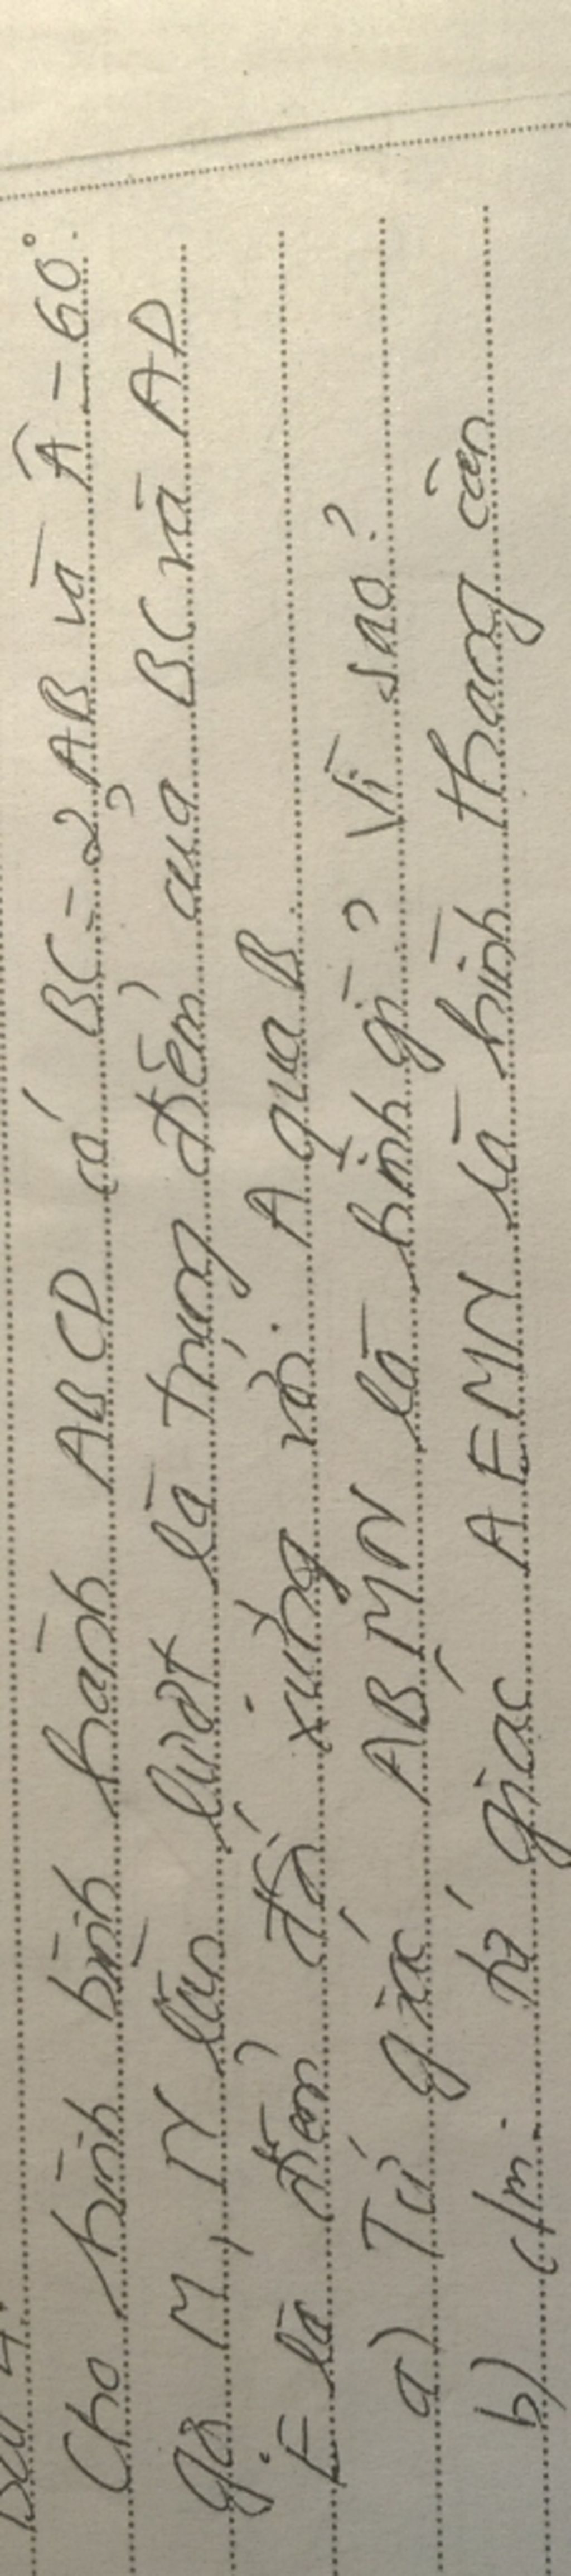 Bài 4:
Cho hình bình hành ABCD có BC = 2AB và Â = 60°.
gọi M, N lần lượt là trung điểm của BC và AD
E là điểm đối xứng với A qua B
a) Tứ giác ABMN là hình gì? Vì sao?
b) c/m. tứ giác AEMN là hình thang cân